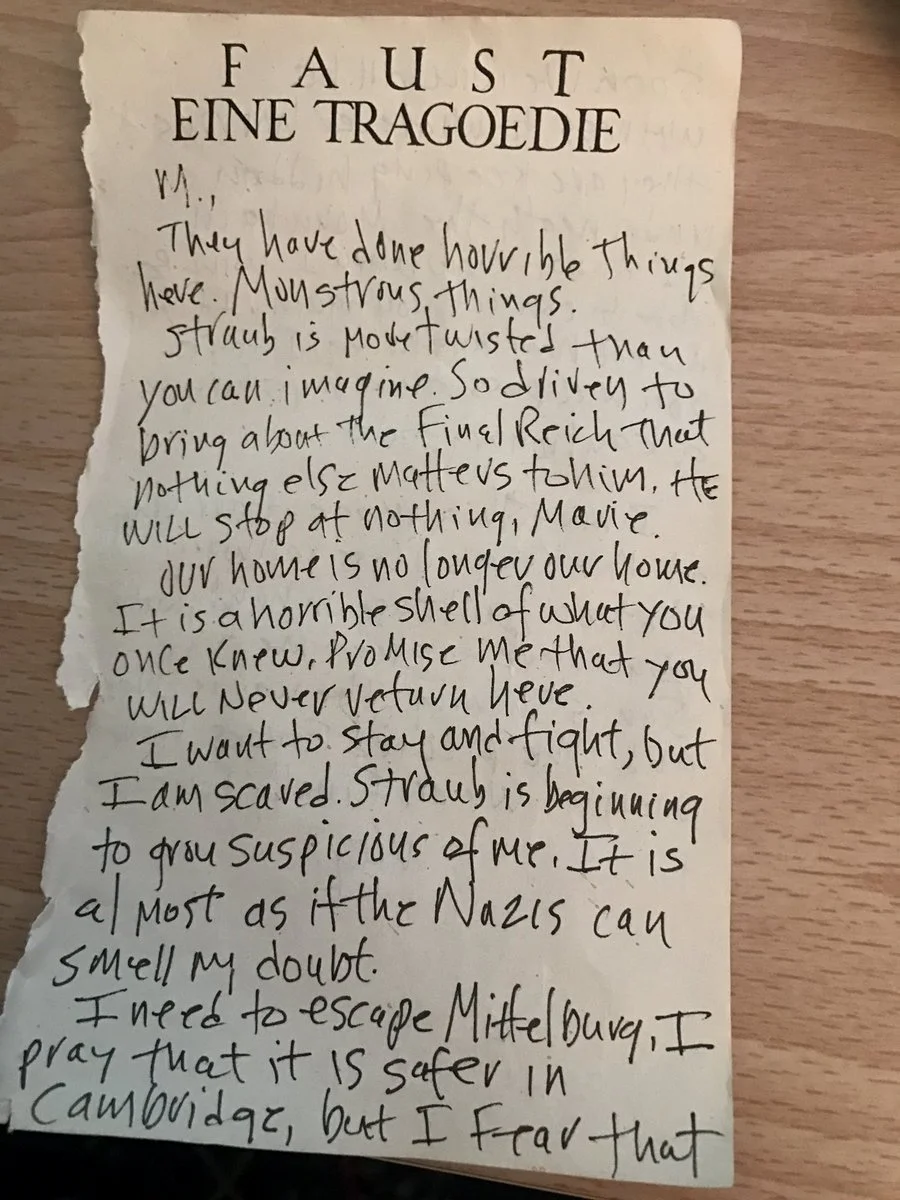 FAUST
EINE TRAGOEDIE
M.,
They have done horrible things
here. Monstrous things.
Straub is more twisted than
you can imagine. So driven to
bring about the Final Reich that
nothing else matters to him. HE
WILL stop at nothing, Marie.
Our home is no longer our home.
It is a horrible shell of what you
once knew. Promise me that you
WILL Never return here.
I want to stay and fight, but
I am scared. Straub is beginning
to grow suspicious of me. It is
almost as if the Nazis can
smell my doubt.
I need to escape Mittelburg, I
pray that it is safer in
Cambridge, but I fear that